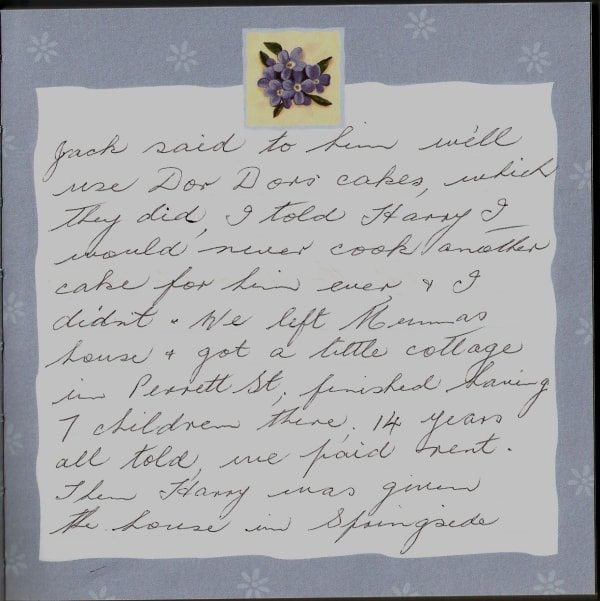 Jack said to him we'll
use Dor Dors cakes, which
they did, I told Harry I
would never cook another
cake for him ever & I
didn't. We left Mummas
house & got a little cottage
in Perrett St, finished having
7 children there, 14 years
all told, we paid rent.
Then Harry was given
the house in Springside